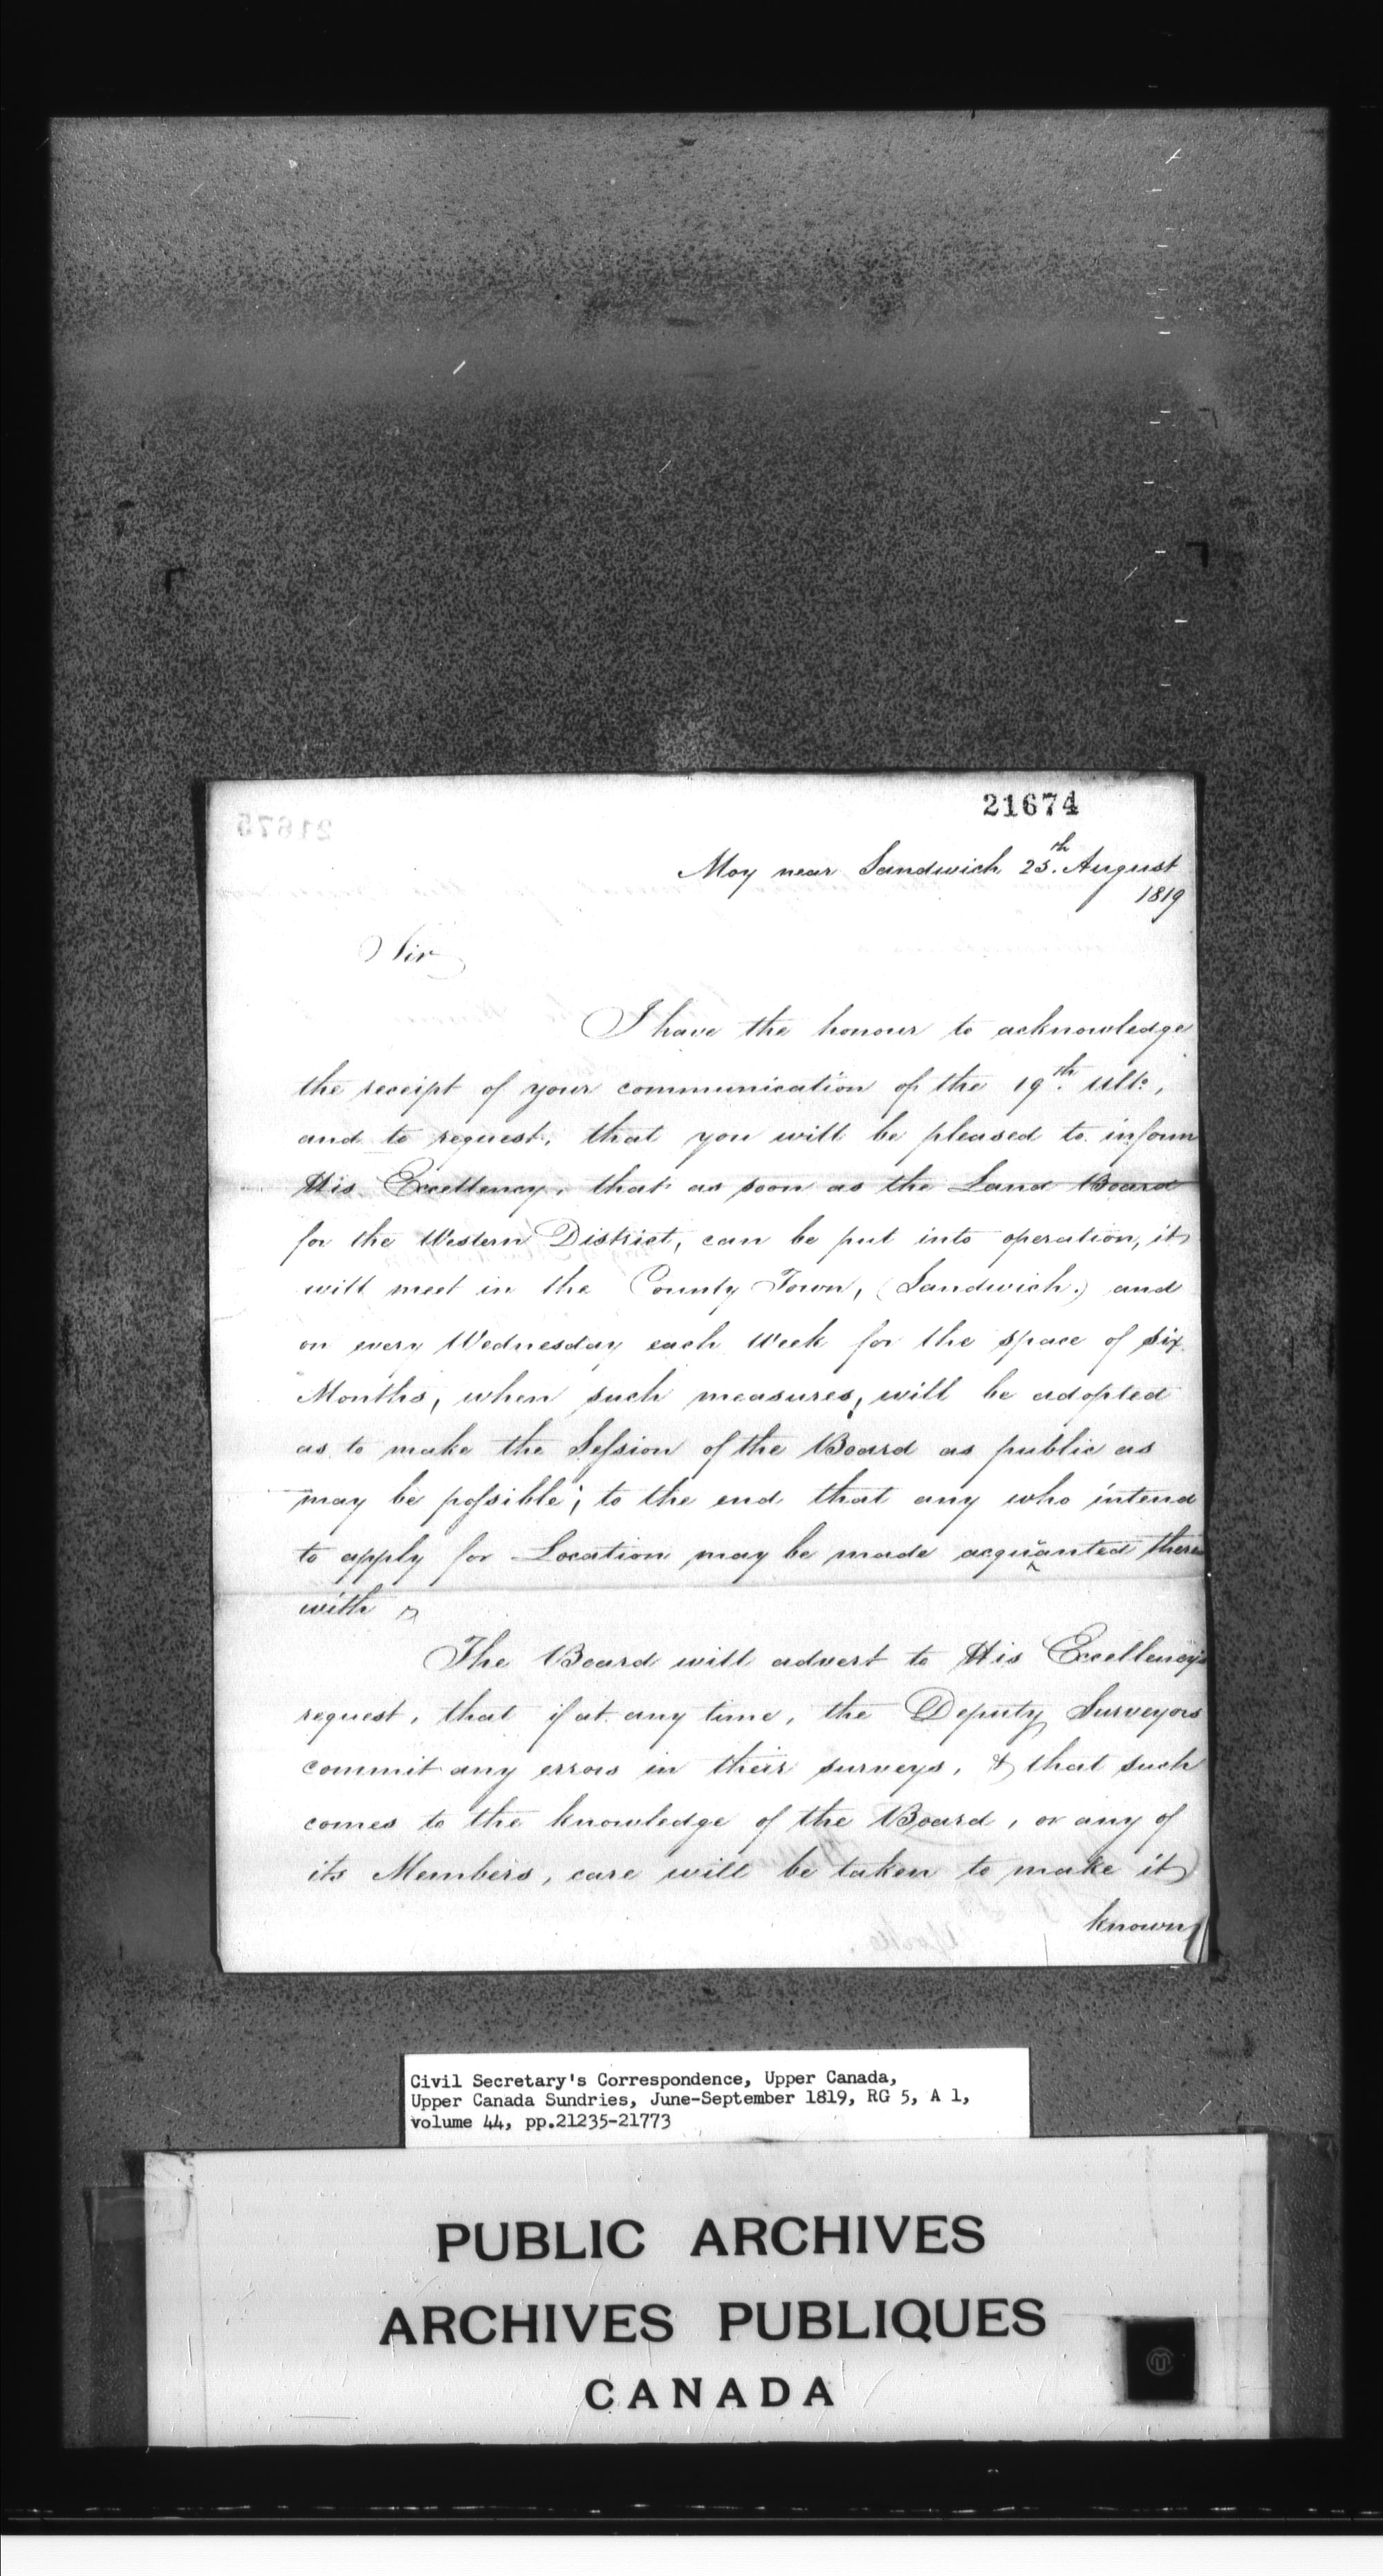 21674
Moy near Sandwich 25th. August
1819
Sir
I have the honour to acknowledge
the receipt of your communication of the 19th. Ulto,
and to request, that you will be pleased to inform
His Excellency, that as soon as the Land Board
for the Western District, can be put into operation, it
will meet in the County Town, (Sandwich.) and
on every Wednesday each Week for the space of six
Months, when such measures, will be adopted
as to make the Session of the Board as public as
may be possible; to the end that any who intend
to apply for Location may be made acquainted there
with
The Board will advert to His Excellency's
request, that if at any time, the Deputy Surveyors
commit any errors in their surveys, & that such
comes to the knowledge of the Board, or any of
its Members, care will be taken to make it
known
Civil Secretary's Correspondence, Upper Canada,
Upper Canada Sundries, June-September 1819, RG 5, A 1,
volume 44, pp.21235-21773
PUBLIC ARCHIVES
ARCHIVES PUBLIQUES
CANADA